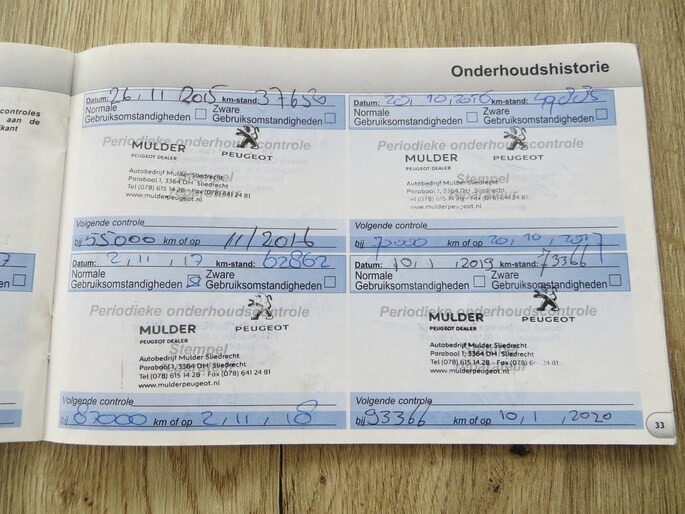 Onderhoudshistorie
controles
aan de
kant
Datum: 26, 11, 2015 km-stand: 37650
Normale Gebruiksomstandigheden
Zware Gebruiksomstandigheden
Periodieke onderhoudscontrole
MULDER
PEUGEOT DEALER
PEUGEOT
Stempel
Autobedrijf Mulder Sliedrecht
Parabool 1, 3364 DH Sliedrecht
Tel (078) 615 14 28 - Fax (078) 641 24 81
www.mulderpeugeot.nl
Volgende controle
bij 55000 km of op 11/2016
Datum: 20, 10, 2016 km-stand:
Normale Gebruiksomstandigheden
Zware Gebruiksomstandigheden
Periodieke onderhoudscontrole
MULDER
PEUGEOT DEALER
PEUGEOT
Stempel
Autobedrijf Mulder Sliedrecht
Parabool 1, 3364 DH Sliedrecht
Tel (078) 615 14 28 - Fax (078) 641 24 81
www.mulderpeugeot.nl
Volgende controle
bij 70000 km of op 20, 10, 2017
Datum: 2, 11, 17 km-stand: 62862
Normale Gebruiksomstandigheden
Zware Gebruiksomstandigheden
Periodieke onderhoudscontrole
MULDER
PEUGEOT DEALER
PEUGEOT
Stempel
Autobedrijf Mulder Sliedrecht
Parabool 1, 3364 DH Sliedrecht
Tel (078) 615 14 28 - Fax (078) 641 24 81
www.mulderpeugeot.nl
Volgende controle
bij 83000 km of op 2, 11, 18
Datum: 10, 1, 2019 km-stand: 73366
Normale Gebruiksomstandigheden
Zware Gebruiksomstandigheden
Periodieke onderhoudscontrole
MULDER
PEUGEOT DEALER
PEUGEOT
Autobedrijf Mulder Sliedrecht
Parabool 1, 3364 DH Sliedrecht
Tel (078) 615 14 28 - Fax (078) 641 24 81
www.mulderpeugeot.nl
Volgende controle
bij 93366 km of op 10, 1, 2020
33